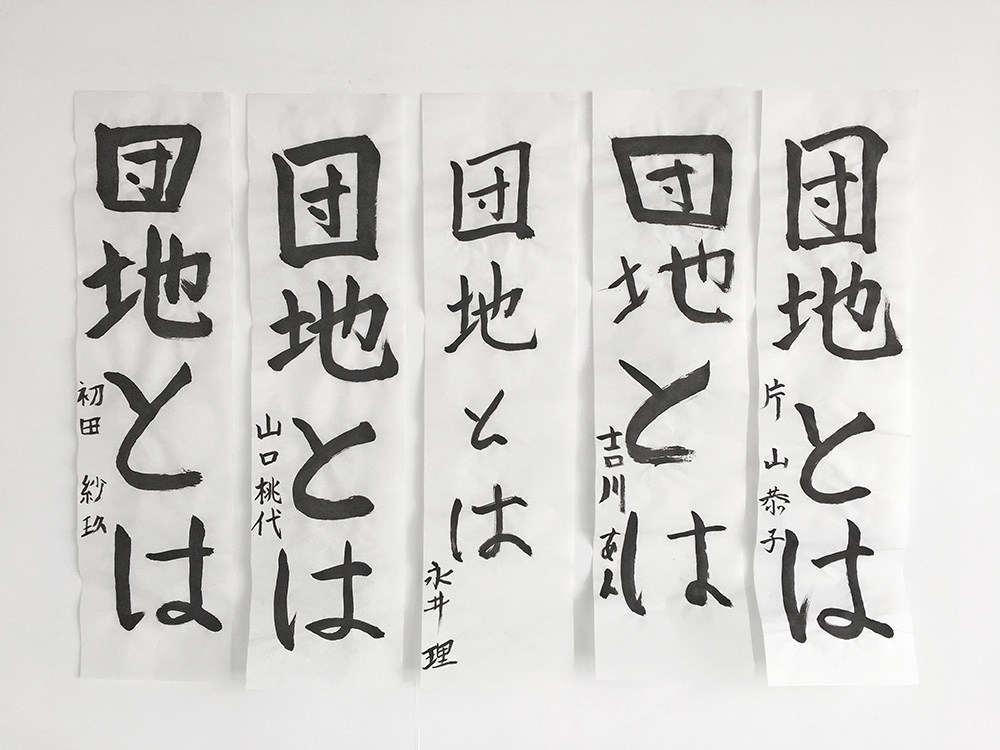 団地とは
片山恭子
団地とは
吉川あん
団地とは
永井理
団地とは
山口桃代
団地とは
初田紗玖